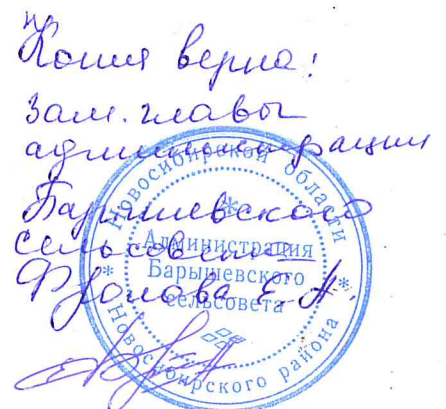 Копия верна:
зам. главы
администрации
Барышевского
сельсовета
Фролова Е.А.
Новосибирской области
Администрация
Барышевского
сельсовета
Новосибирского района